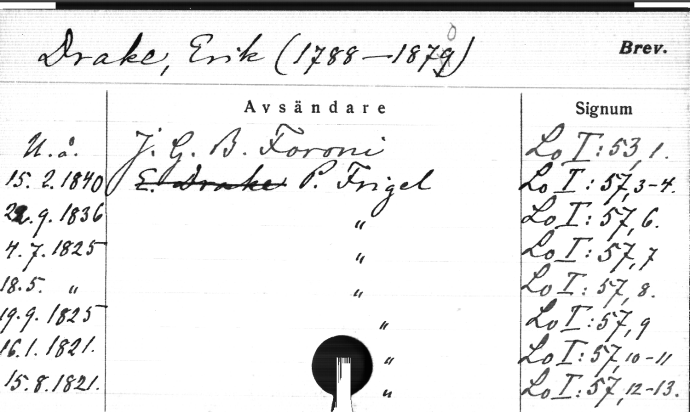 Drake, Erik (1788–1870) Brev.
Avsändare Signum
U.å. J. G. B. Foroni Lo I: 53, 1.
15. 2. 1840 E. Drake P. Frigel Lo I: 57, 3-4.
22. 9. 1836 " Lo I: 57, 6.
4. 7. 1825 " Lo I: 57, 7
18. 5. " " Lo I: 57, 8.
19. 9. 1825 " Lo I: 57, 9
16. 1. 1821. " Lo I: 57, 10-11
15. 8. 1821. " Lo I: 57, 12-13.